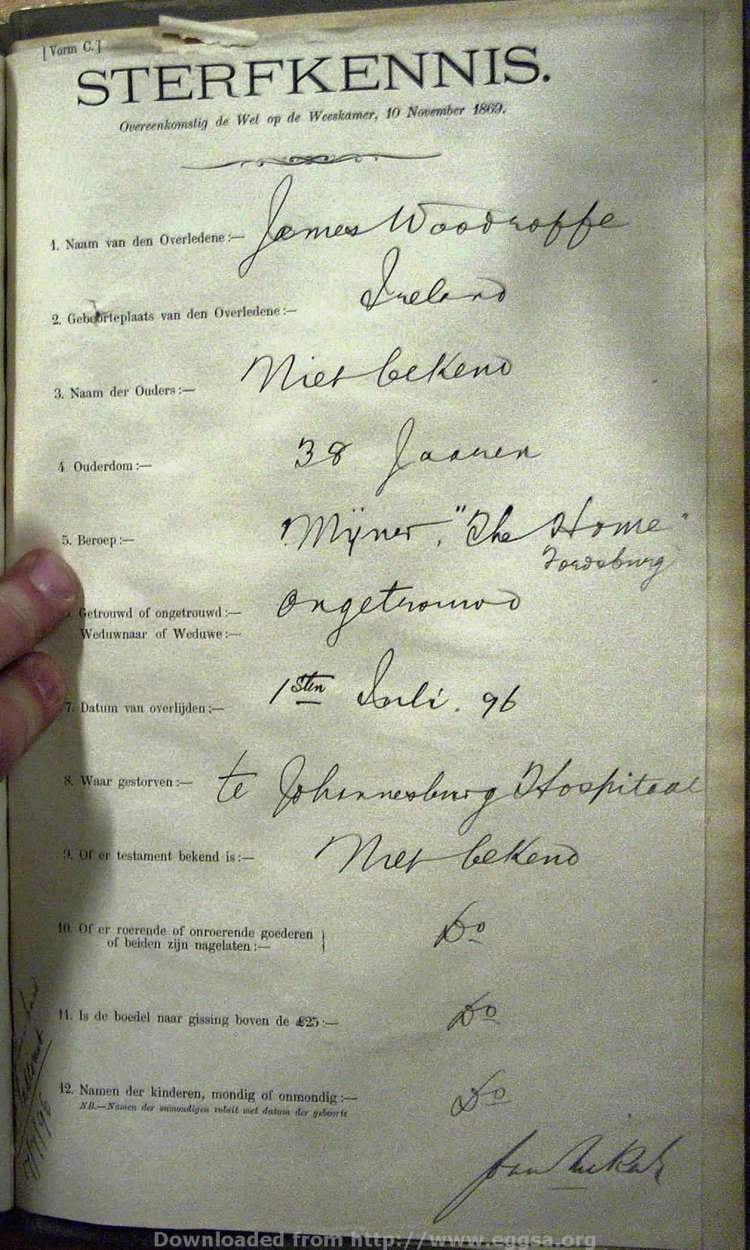 [Vorm C.]
STERFKENNIS.
Overeenkomstig de Wet op de Weeskamer, 10 November 1869.
1. Naam van den Overledene:— James Woodroffe
2. Geboorteplaats van den Overledene:— Ireland
3. Naam der Ouders:— Niet bekend
4 Ouderdom:— 38 Jaaren
5. Beroep:— Mijner, "The Home"
Fordsburg
Getrouwd of ongetrouwd:— Ongetrouwd
Weduwnaar of Weduwe:—
7. Datum van overlijden:— 1sten Juli. 96
8. Waar gestorven:— te Johannesburg Hospitaal
9. Of er testament bekend is:— Niet bekend
10. Of er roerende of onroerende goederen } Do
of beiden zijn nagelaten:—
11. Is de boedel naar gissing boven de £25:— Do
12. Namen der kinderen, mondig of onmondig:— Do
NB.—Namen der onmondigen voluit met datum der geboorte
7/7/96
Downloaded from http://www.eggsa.org